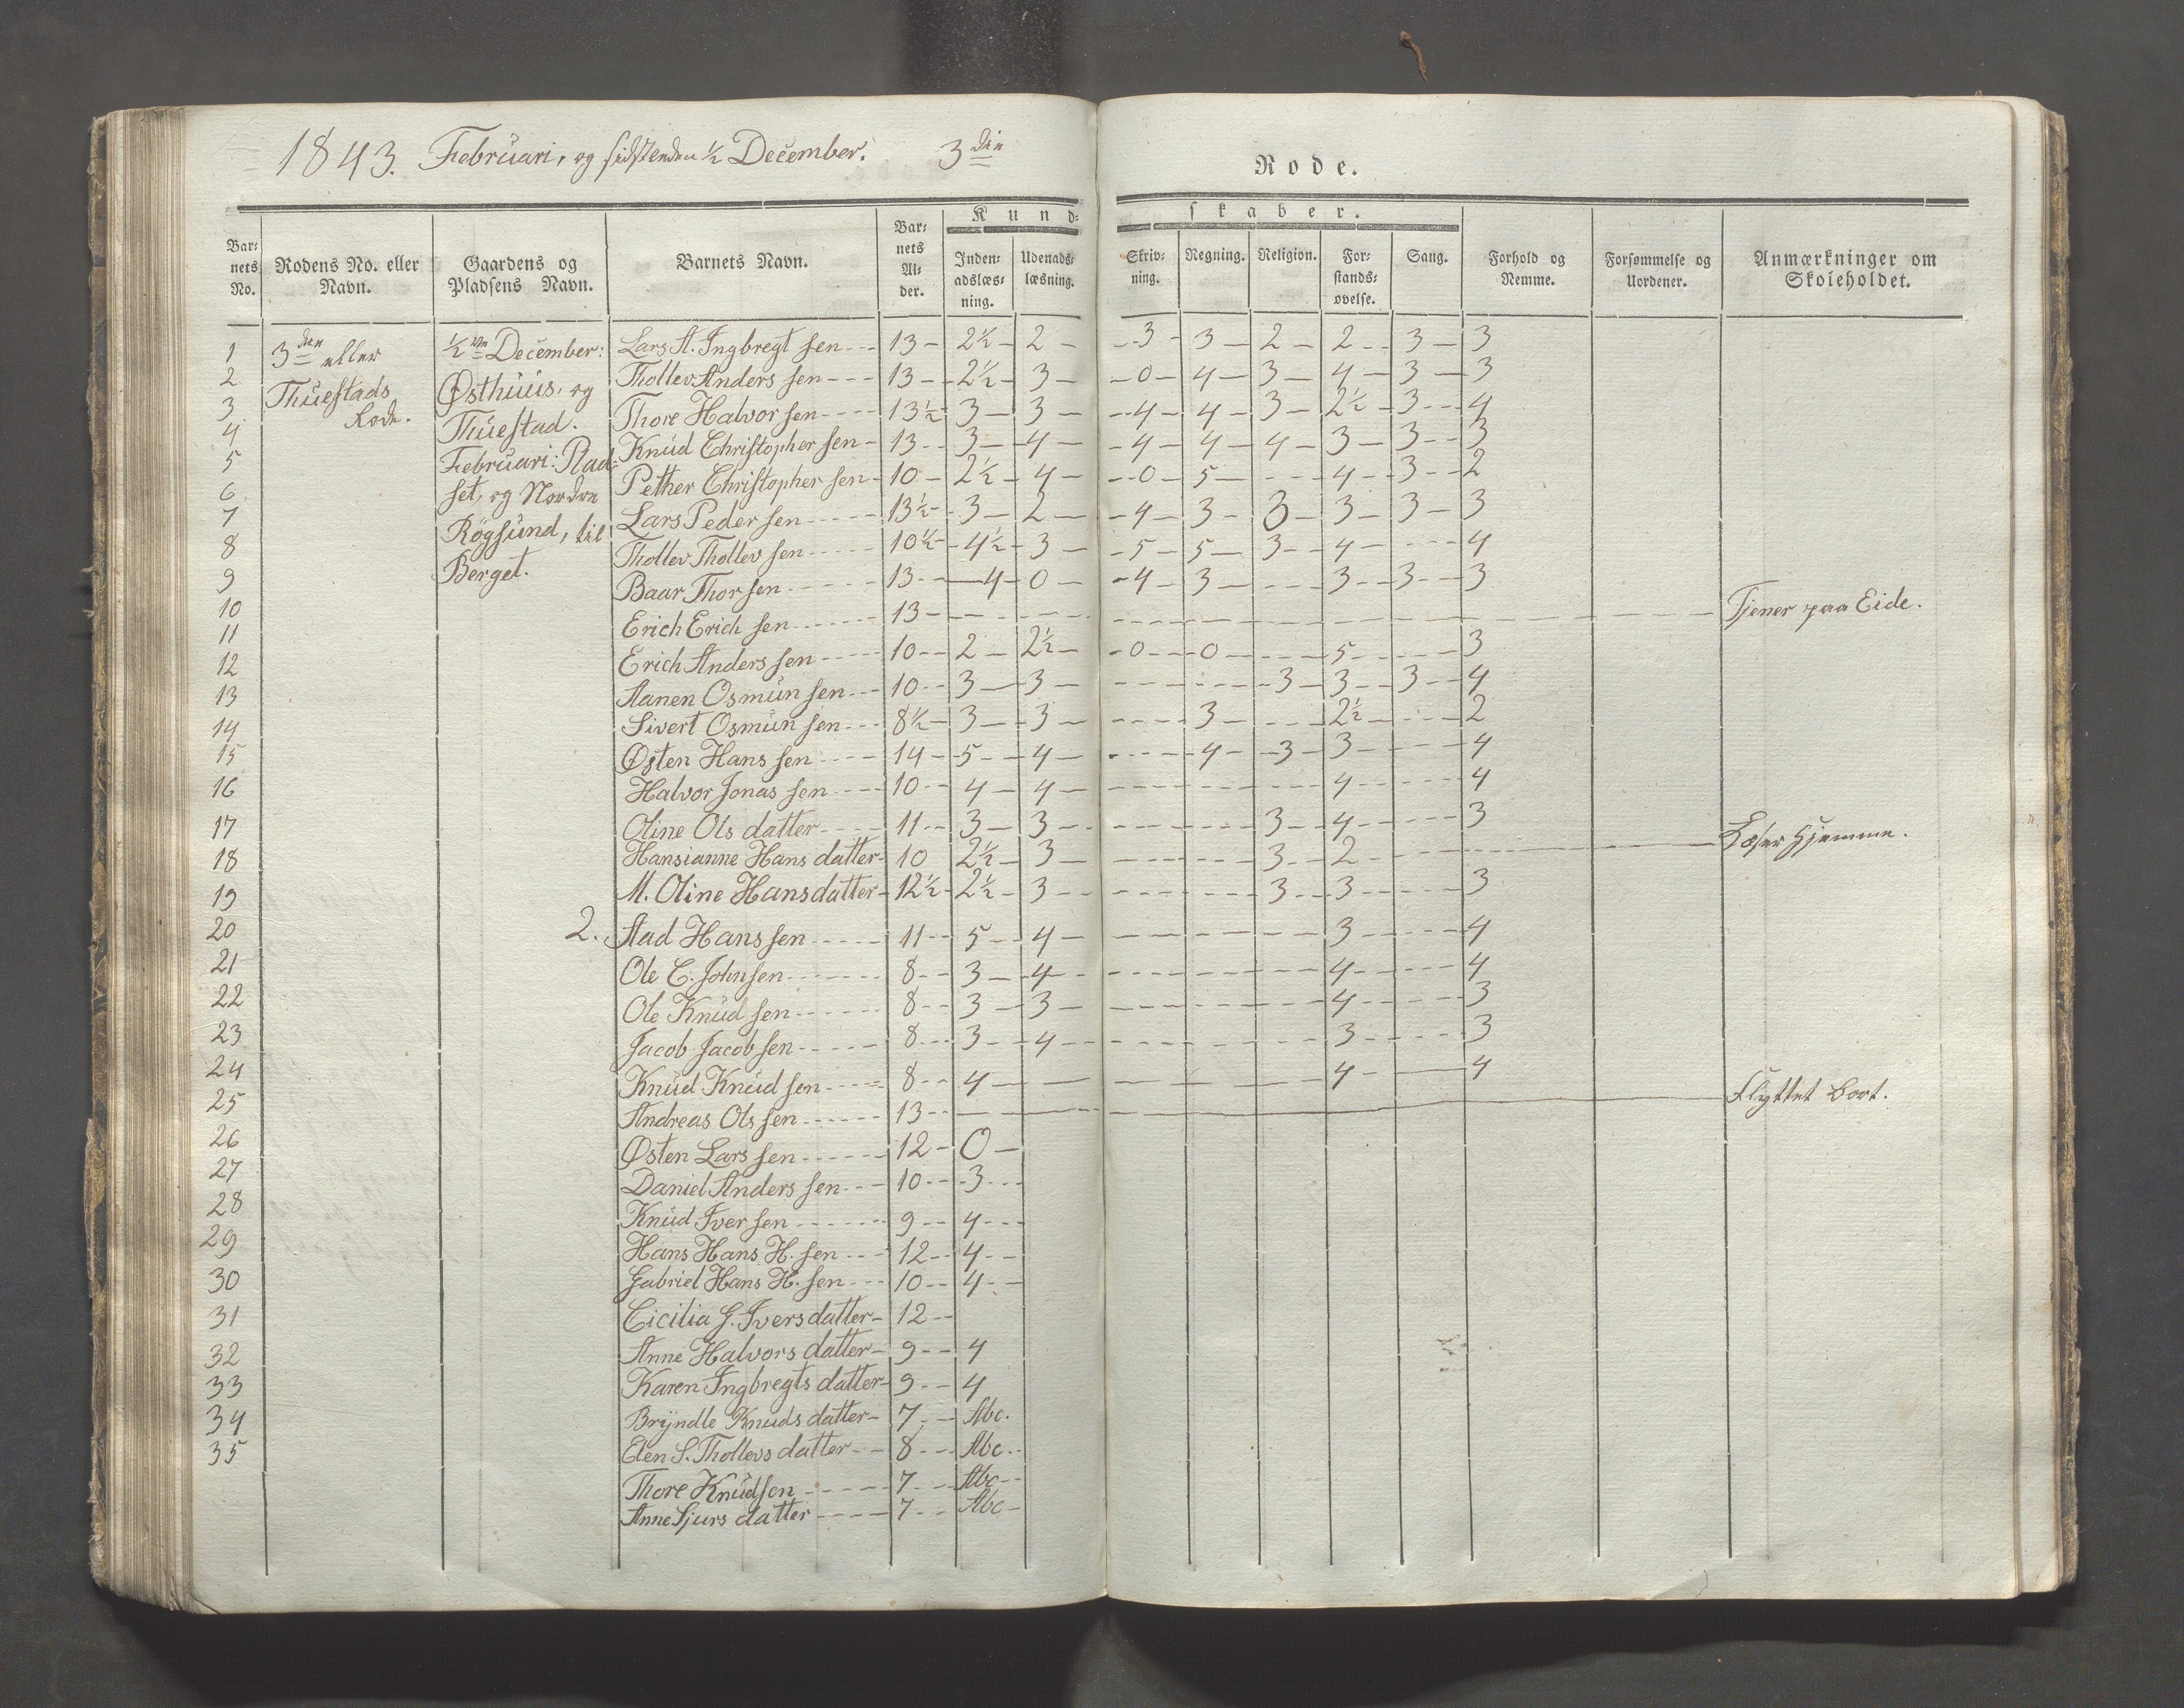 1843. Februari, og sidstenden ½ December. 3die Rode.
Kundskaber.
Barnets No. Rodens No. eller Navn. Gaardens og Pladsens Navn. Barnets Navn. Barnets Alder. Indenadslæsning. Udenadslæsning. Skrivning. Regning. Religion. Forstandsøvelse. Sang. Forhold og Nemme. Forsømmelse og Uordener. Anmærkninger om Skoleholdet.
1 3die eller ½ December: Lars A. Ingbregt sen 13 2½ 2 3 3 2 2 3 3
2 Thuestads Østhuus, og Thollev Anders sen 13 2½ 3 0 4 3 4 3 3
3 Rode. Thuestad. Thore Halvor sen 13½ 3 3 4 4 3 2½ 3 4
4 Februari: Plad= Knud Christopher sen 13 3 4 4 4 4 3 3 3
5 set, og Norden Pether Christopher sen 10 2½ 4 0 5 4 3 2
6 Røgsund, til Lars Peder sen 13½ 3 2 4 3 3 3 3 3
7 Berget. Thollev Thollev sen 10½ 4½ 3 5 5 3 4 4
8 Baar Thor sen 13 4 0 4 3 3 3 3
9 Erich Erich sen 13 Tjener paa Eide.
10 Erich Anders sen 10 2 2½ 0 0 5 3
11 Aanen Osmun sen 10 3 3 3 3 3 4
12 Sivert Osmun sen 8½ 3 3 3 2½ 2
13 Østen Hans sen 14 5 4 4 3 3 4
14 Halvor Jonas sen 10 4 4 4 4
15 Oline Ols datter 11 3 3 3 4 3
16 Hansianne Hans datter 10 2½ 3 3 2 Læser hjemme.
17 M. Oline Hansdatter 12½ 2½ 3 3 3 3
18 2. Aad Hans sen 11 5 4 3 4
19 Ole C. Johnsen 8 3 4 4 4
20 Ole Knud sen 8 3 3 4 3
21 Jacob Jacob sen 8 3 4 3 3
22 Knud Knud sen 8 4 4 4
23 Andreas Ols sen 13 Flyttet bort.
24 Østen Lars sen 12 0
25 Daniel Anders sen 10 3
26 Knud Iver sen 9 4
27 Hans Hans H. sen 12 4
28 Gabriel Hans H. sen 10 4
29 Cicilia G. Ivers datter 12
30 Anne Halvors datter 9 4
31 Karen Ingbregts datter 9 4
32 Bryndle Knuds datter 7 Abc.
33 Elen S. Thollevs datter 8 Abc
34 Thore Knudsen 7 Abc
35 Anne Sjurs datter 7 Abc